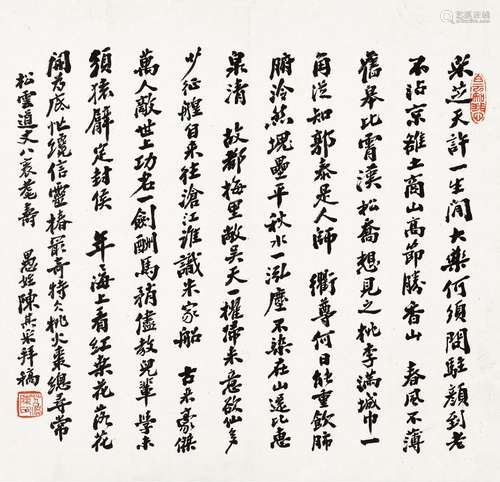 采芝天許一生閒大藥何須閟駐顏到老
不沾京雒土商山高節勝香山 春風不薄
舊皋比霄漢松喬想見之桃李滿城巾一
角從知郭泰是人師 衢尊何日能重飲肺
腑泠然塊壘平秋水一泓塵不染在山遠比惠
泉清 故都梅里敞吳天一櫂歸來意欲仙多
少征艎自來往滄江誰識米家船 古來豪傑
萬人敵世上功名一劍酬馬矟儘教兒輩學未
須猿臂定封侯 年〻海上看紅桑花落花
開為底忙纔信靈椿最奇特桃火棗總尋常
松雲道丈八袠耄壽 愚姪陳其采拜稿